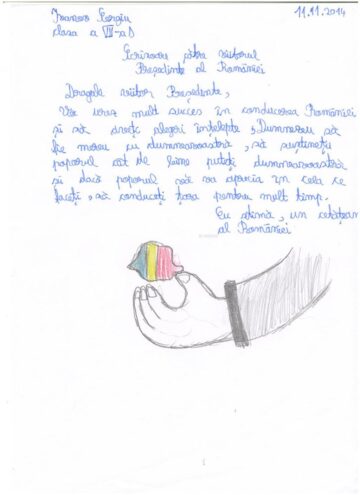 11.11.2014
Sergiu
clasa a VII-a D
Scrisoare către viitorul
Președinte al României
Dragule viitor Președinte,
Vă urez mult succes în conducerea României
și să aveți alegeri înțelepte, Dumnezeu să
fie mereu cu dumneavoastră, să susțineți
poporul cât de bine puteți dumneavoastră
și dacă poporul vă va în ceea ce
faceți, să conduceți țara pentru mult timp.
Cu stimă, un cetățean
al României